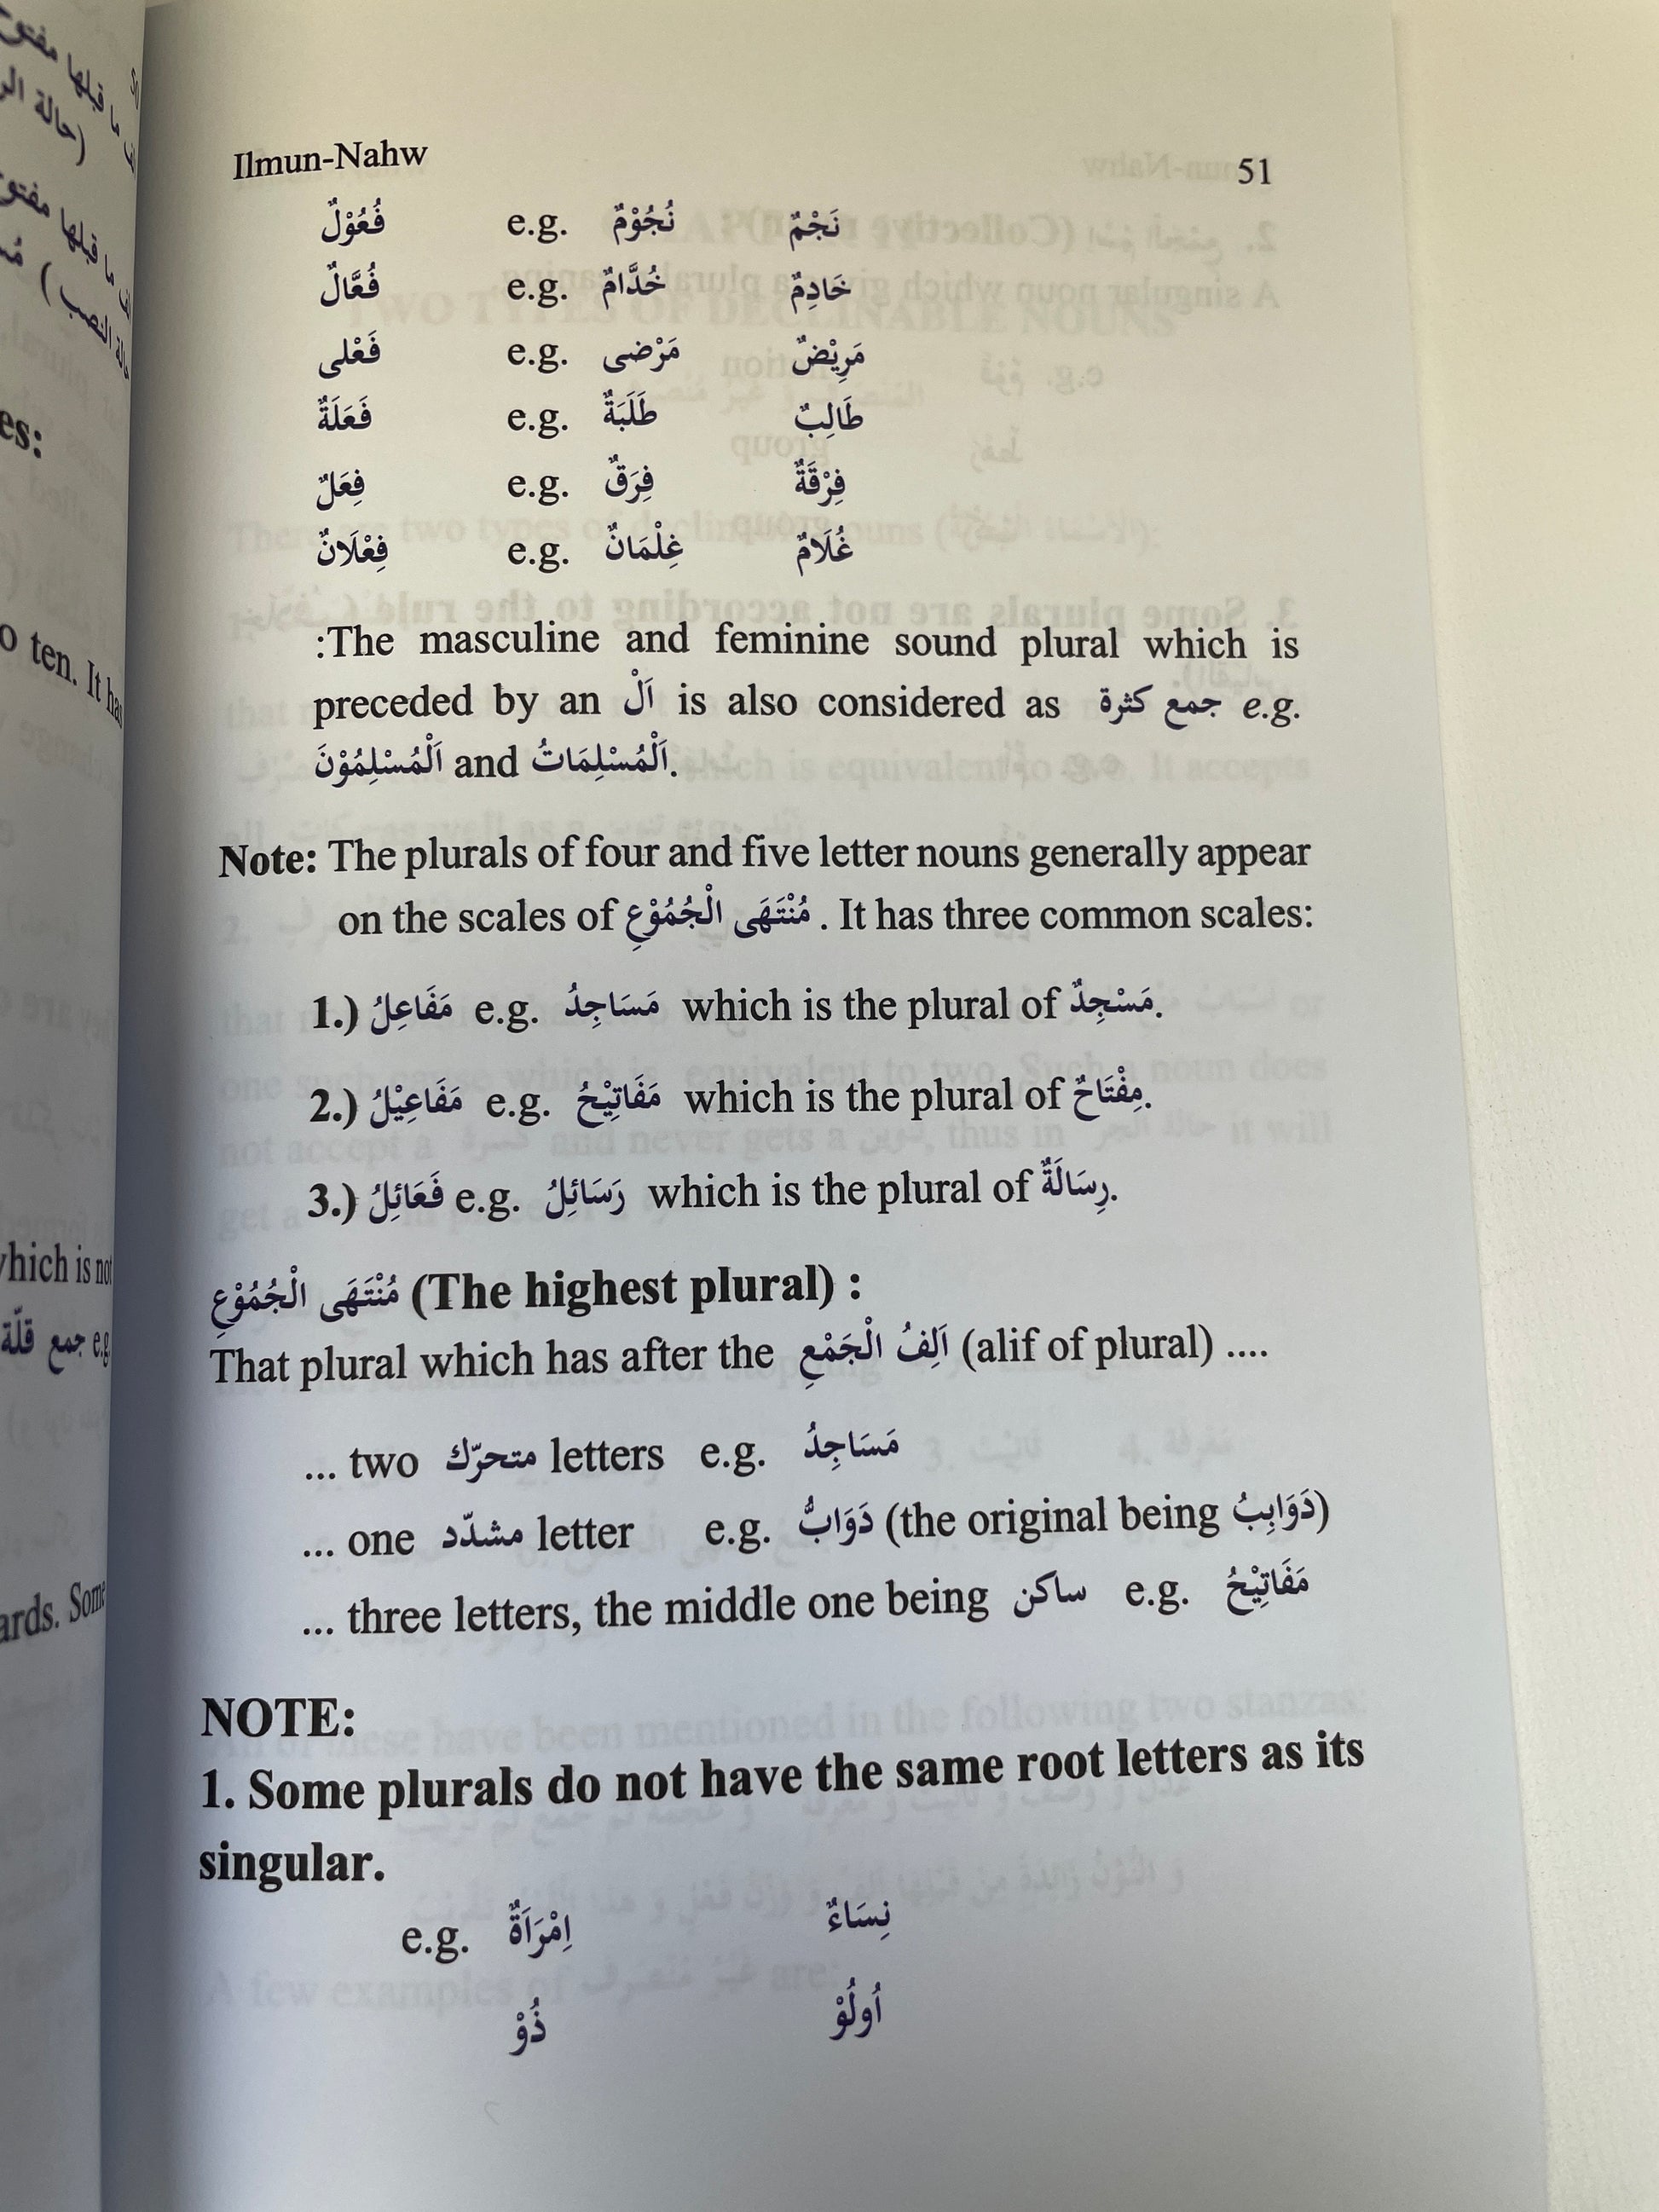 Ilmun-Nahw 51
فُعُوْلٌ e.g. نُجُوْمٌ نَجْمٌ
فُعَّالٌ e.g. خُدَّامٌ خَادِمٌ
فَعْلى e.g. مَرْضى مَرِيْضٌ
فَعَلَةٌ e.g. طَلَبَةٌ طَالِبٌ
فِعَلٌ e.g. فِرَقٌ فِرْقَةٌ
فِعْلَانٌ e.g. غِلْمَانٌ غُلَامٌ
:The masculine and feminine sound plural which is
preceded by an اَلْ is also considered as جمع كثرة e.g.
اَلْمُسْلِمُوْنَ and اَلْمُسْلِمَاتُ.
Note: The plurals of four and five letter nouns generally appear
on the scales of مُنْتَهَى الْجُمُوْعِ . It has three common scales:
1.) مَفَاعِلُ e.g. مَسَاجِدُ which is the plural of مَسْجِدٌ.
2.) مَفَاعِيْلُ e.g. مَفَاتِيْحُ which is the plural of مِفْتَاحٌ.
3.) فَعَائِلُ e.g. رَسَائِلُ which is the plural of رِسَالَةٌ.
مُنْتَهَى الْجُمُوْعِ (The highest plural) :
That plural which has after the اَلِفُ الْجَمْعِ (alif of plural) ....
... two متحرّك letters e.g. مَسَاجِدُ
... one مشدّد letter e.g. دَوَابُّ (the original being دَوَابِبُ)
... three letters, the middle one being ساكن e.g. مَفَاتِيْحُ
NOTE:
1. Some plurals do not have the same root letters as its
singular.
e.g. اِمْرَاَةٌ نِسَاءٌ
ذُوْ اُولُوْ